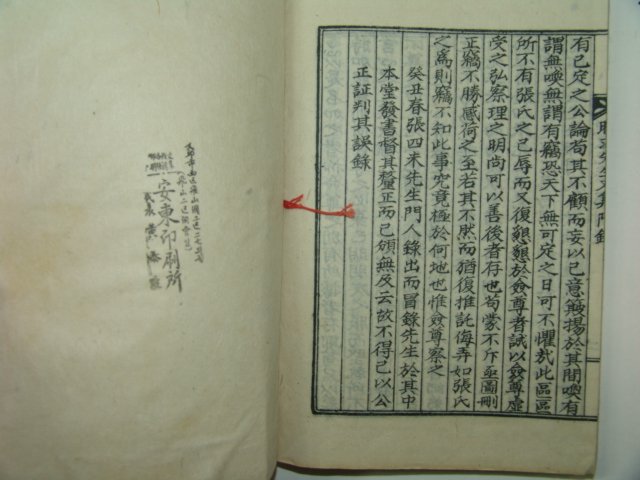 有已定之公論苟其不顧而妄以已意簸揚於其間喚有
謂無喚無謂有竊恐天下無可定之日可不懼哉此區區
所不有張氏之已辱而又復懇懇於僉尊者誠以僉尊虛
受之弘察理之明尚可以善後者存也苟蒙不斥亟圖刪
正竊不勝感荷之至若其不然而猶復推託侮弄如張氏
之爲則竊不知此事究竟極於何地也惟僉尊察之
癸丑春張四未先生門人錄出而冒錄先生於其中
本堂發書督其釐正而已頒無及云故不得已以公
正証判其誤錄
安東印刷所